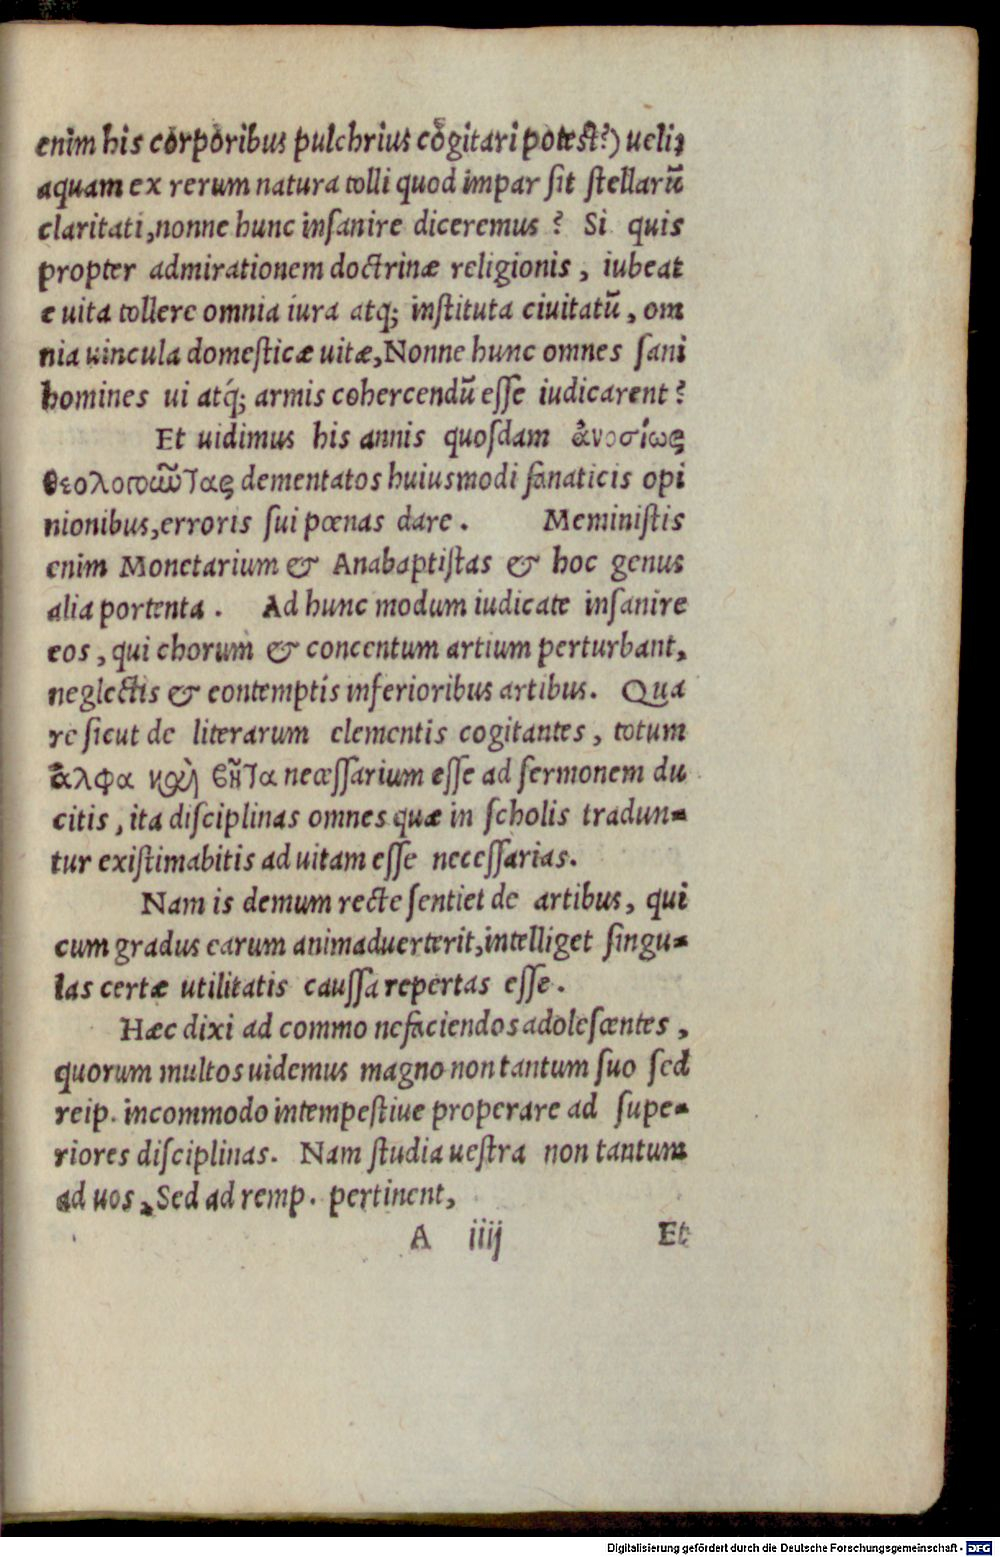 enim his corporibus pulchrius cogitari potest?) ueliꝫ
aquam ex rerum natura tolli quod impar ſit ſtellarũ
claritati, nonne hunc inſanire diceremus ? Si quis
propter admirationem doctrinæ religionis, iubeat
e uita tollere omnia iura atq; inſtituta ciuitatũ, om
nia uincula domeſticæ uitæ, Nonne hunc omnes ſani
homines ui atq́; armis cohercendũ eſſe iudicarent?
Et uidimus his annis quoſdam ἀνοσίως
θεολογοῶῦτας dementatos huiusmodi fanaticis opi
nionibus, erroris ſui pœnas dare. Meminiſtis
enim Monetarium & Anabaptiſtas & hoc genus
alia portenta. Ad hunc modum iudicate inſanire
eos, qui chorum & concentum artium perturbant,
neglectis & contemptis inferioribus artibus. Qua
re ſicut de literarum elementis cogitantes, totum
ἄλφα καὶ βῆτα neceſſarium eſſe ad ſermonem du
citis, ita diſciplinas omnes quæ in ſcholis tradun-
tur exiſtimabitis ad uitam eſſe neceſſarias.
Nam is demum recte ſentiet de artibus, qui
cum gradus earum animaduerterit, intelliget ſingu-
las certæ utilitatis cauſſa repertas eſſe.
Hæc dixi ad commo nefaciendos adoleſcentes,
quorum multos uidemus magno non tantum ſuo ſed
reip. incommodo intempeſtiue properare ad ſupe-
riores diſciplinas. Nam ſtudia ueſtra non tantum
ad uos, Sed ad remp. pertinent,
A iiij Et
Digitalisierung gefördert durch die Deutsche Forschungsgemeinschaft - DFG